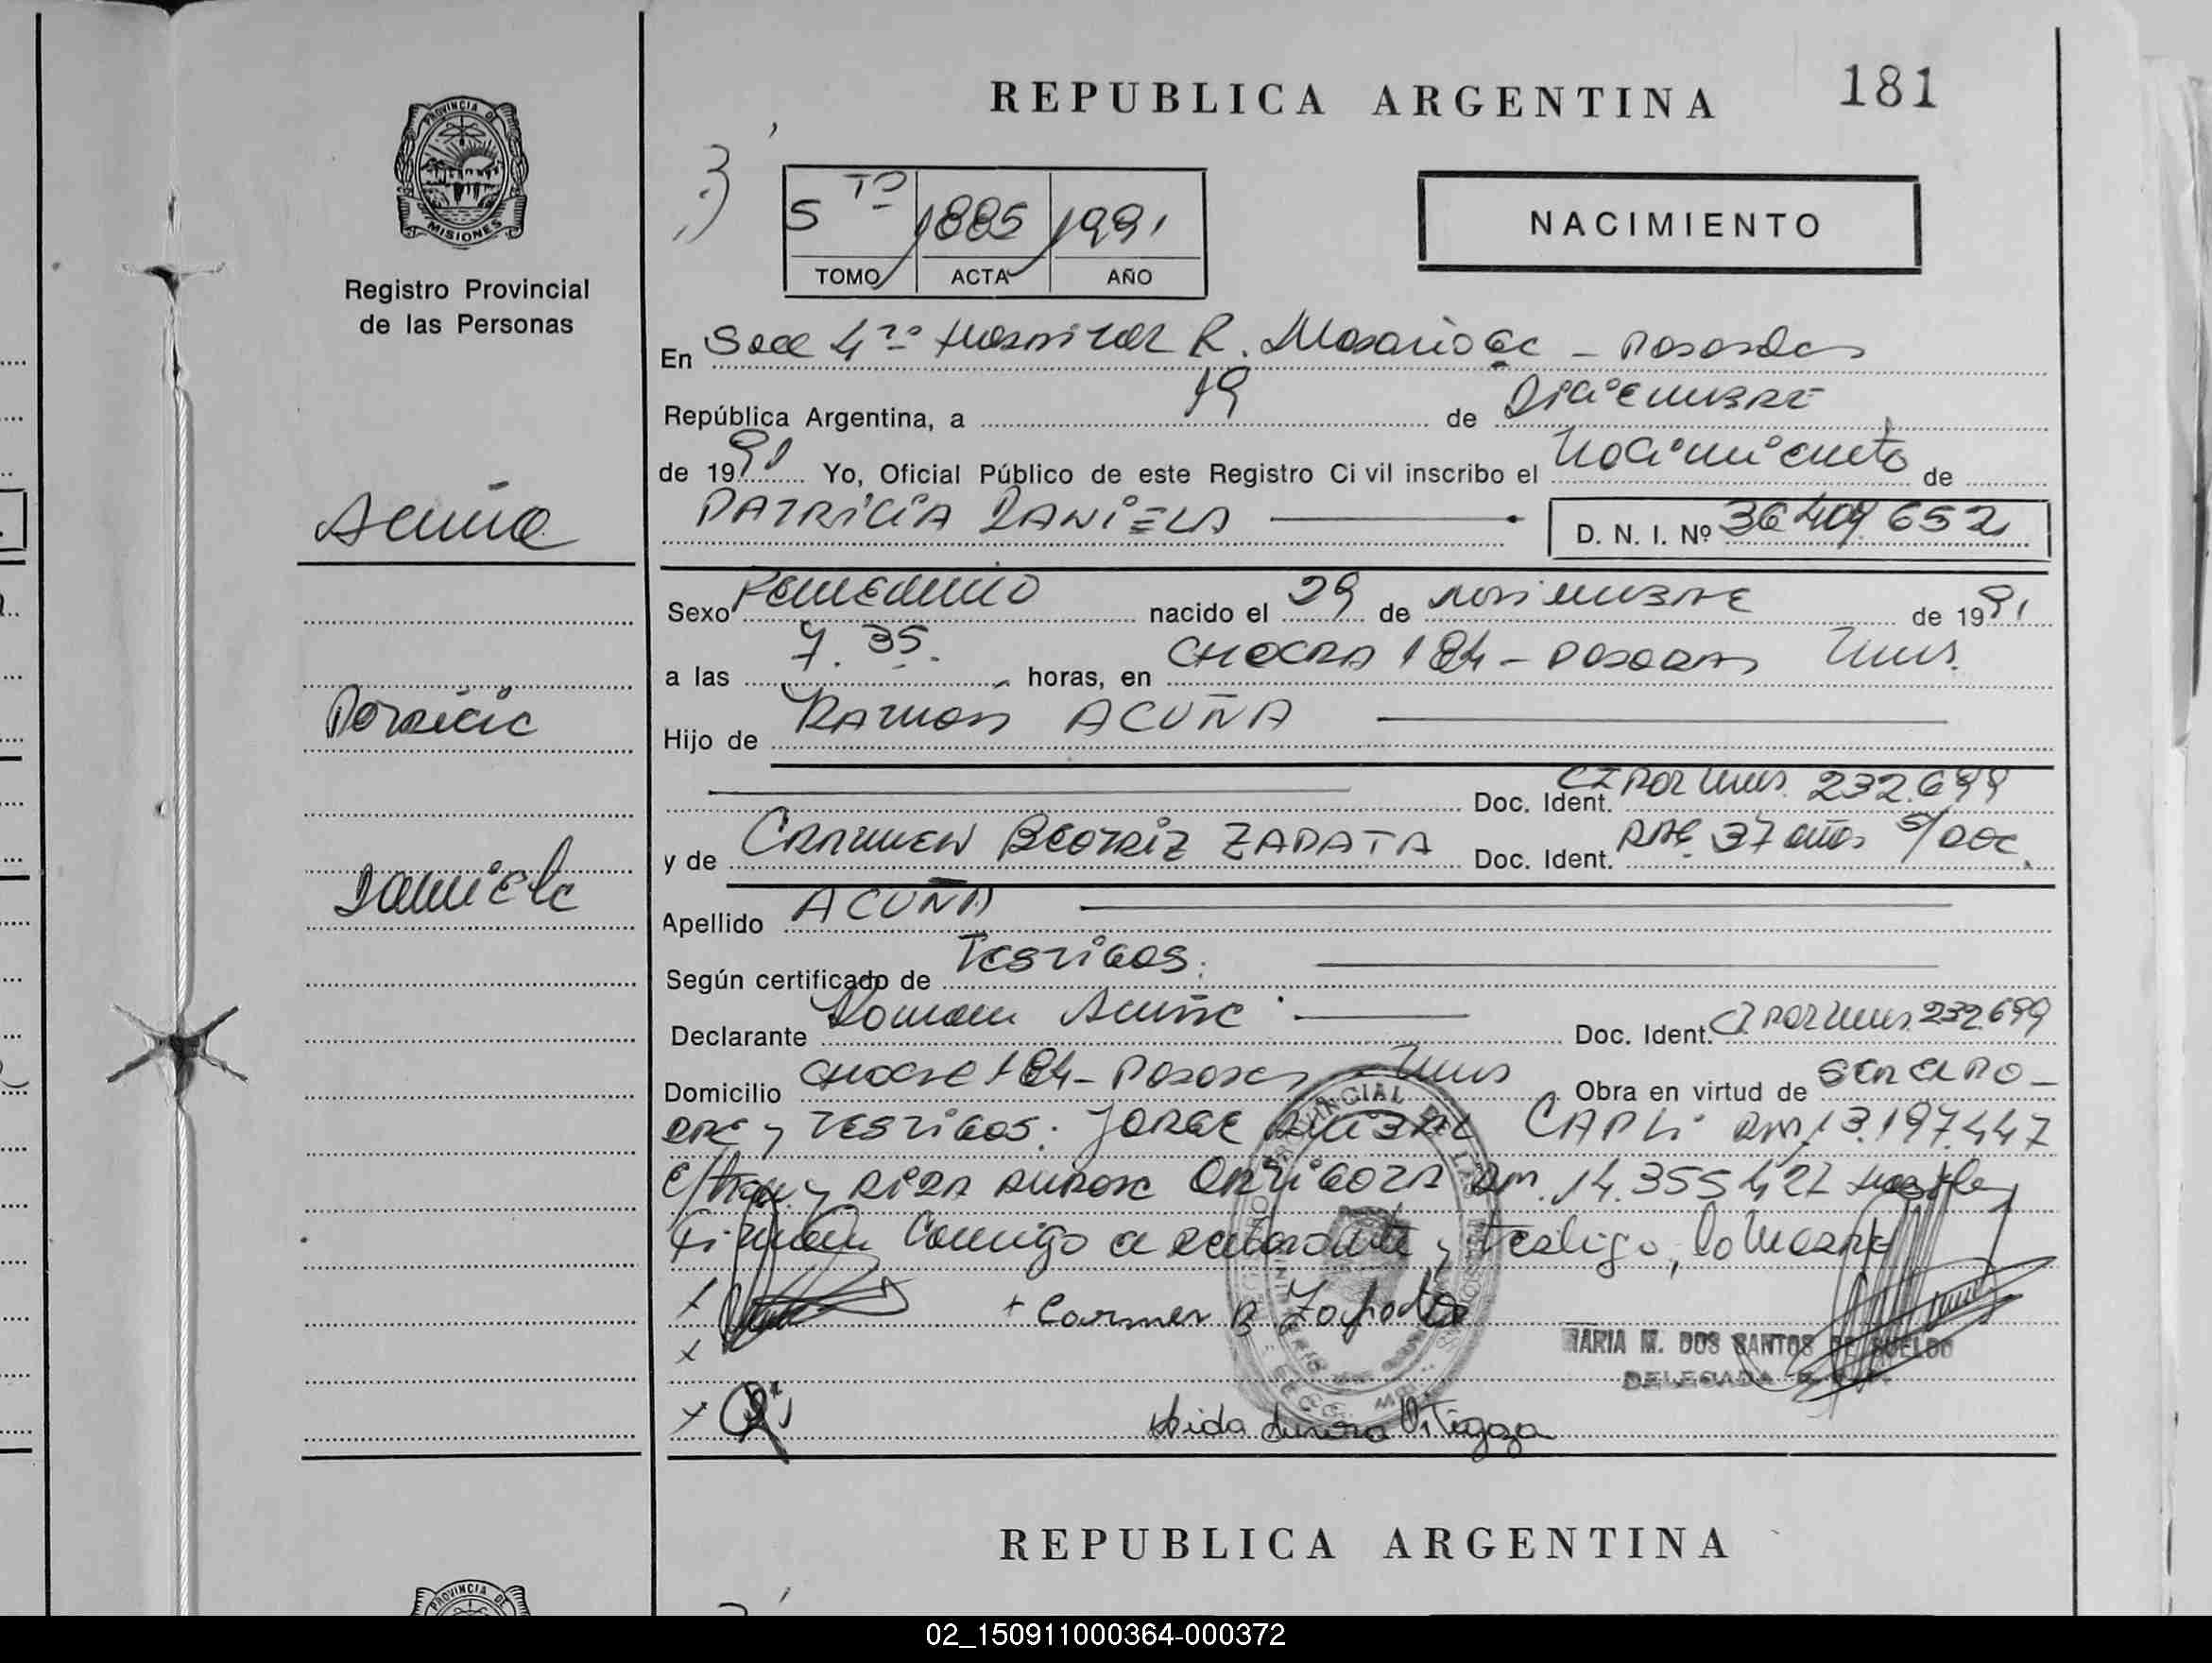 REPUBLICA ARGENTINA 181
PROVINCIA DE
MISIONES
Registro Provincial
de las Personas
3)
5 TO 1885 1991
TOMO ACTA AÑO
NACIMIENTO
En Secc 4ta Hospital R. Madariaga - Posadas
República Argentina, a 19 de Diciembre
de 1991 Yo, Oficial Público de este Registro Civil inscribo el Nacimiento de
Acuña
PATRICIA DANIELA D. N. I. Nº 36 409 652
Sexo Femenino nacido el 29 de noviembre de 1991
a las 7.35. horas, en CHACRA 184 - POSADAS Mns.
Patricia
Hijo de Ramón ACUÑA
Doc. Ident. CI POL Mns. 232.699
y de CARMEN BEATRIZ ZAPATA Doc. Ident. 37 años s/Doc.
Daniela
Apellido ACUÑA
Según certificado de Testigos.
Declarante Acuña Doc. Ident. CI POL Mns. 232.699
Domicilio Chacra 184 - Posadas Mns Obra en virtud de
y Testigos: JORGE CAPLI 13.197.447
y AURORA 14.355.427
Firman Conmigo declarante y testigo, la madre
x
+ Carmen B Zapata
x
MARIA M. DOS SANTOS DE SUELDO
DELEGADA
x
Aida Aurora Ortigoza
REPUBLICA ARGENTINA
PROVINCIA DE
02_150911000364-000372